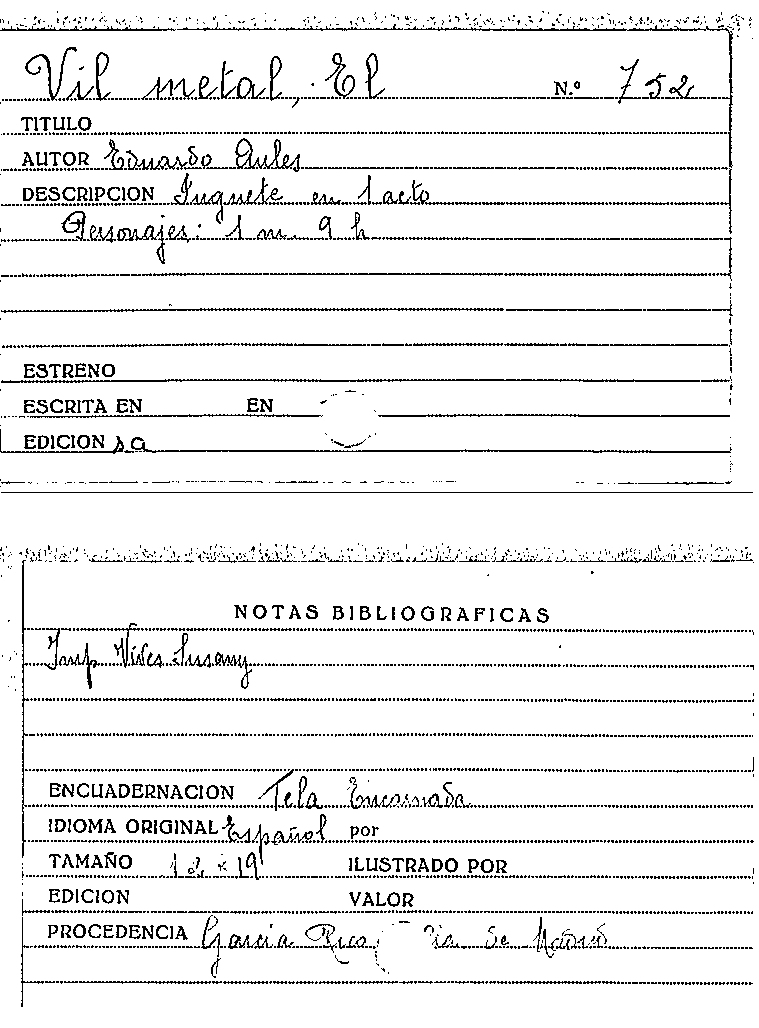 Vil metal, El N.º 752
TITULO
AUTOR Eduardo Aules
DESCRIPCION Juguete en 1 acto
Personajes: 1 m. 9 h
ESTRENO
ESCRITA EN EN
EDICION s.a
NOTAS BIBLIOGRAFICAS
Imp Vives Susany
ENCUADERNACION Tela Encarnada
IDIOMA ORIGINAL Español por
TAMAÑO 12 x 19 ILUSTRADO POR
EDICION VALOR
PROCEDENCIA Garcia Rico de Madrid